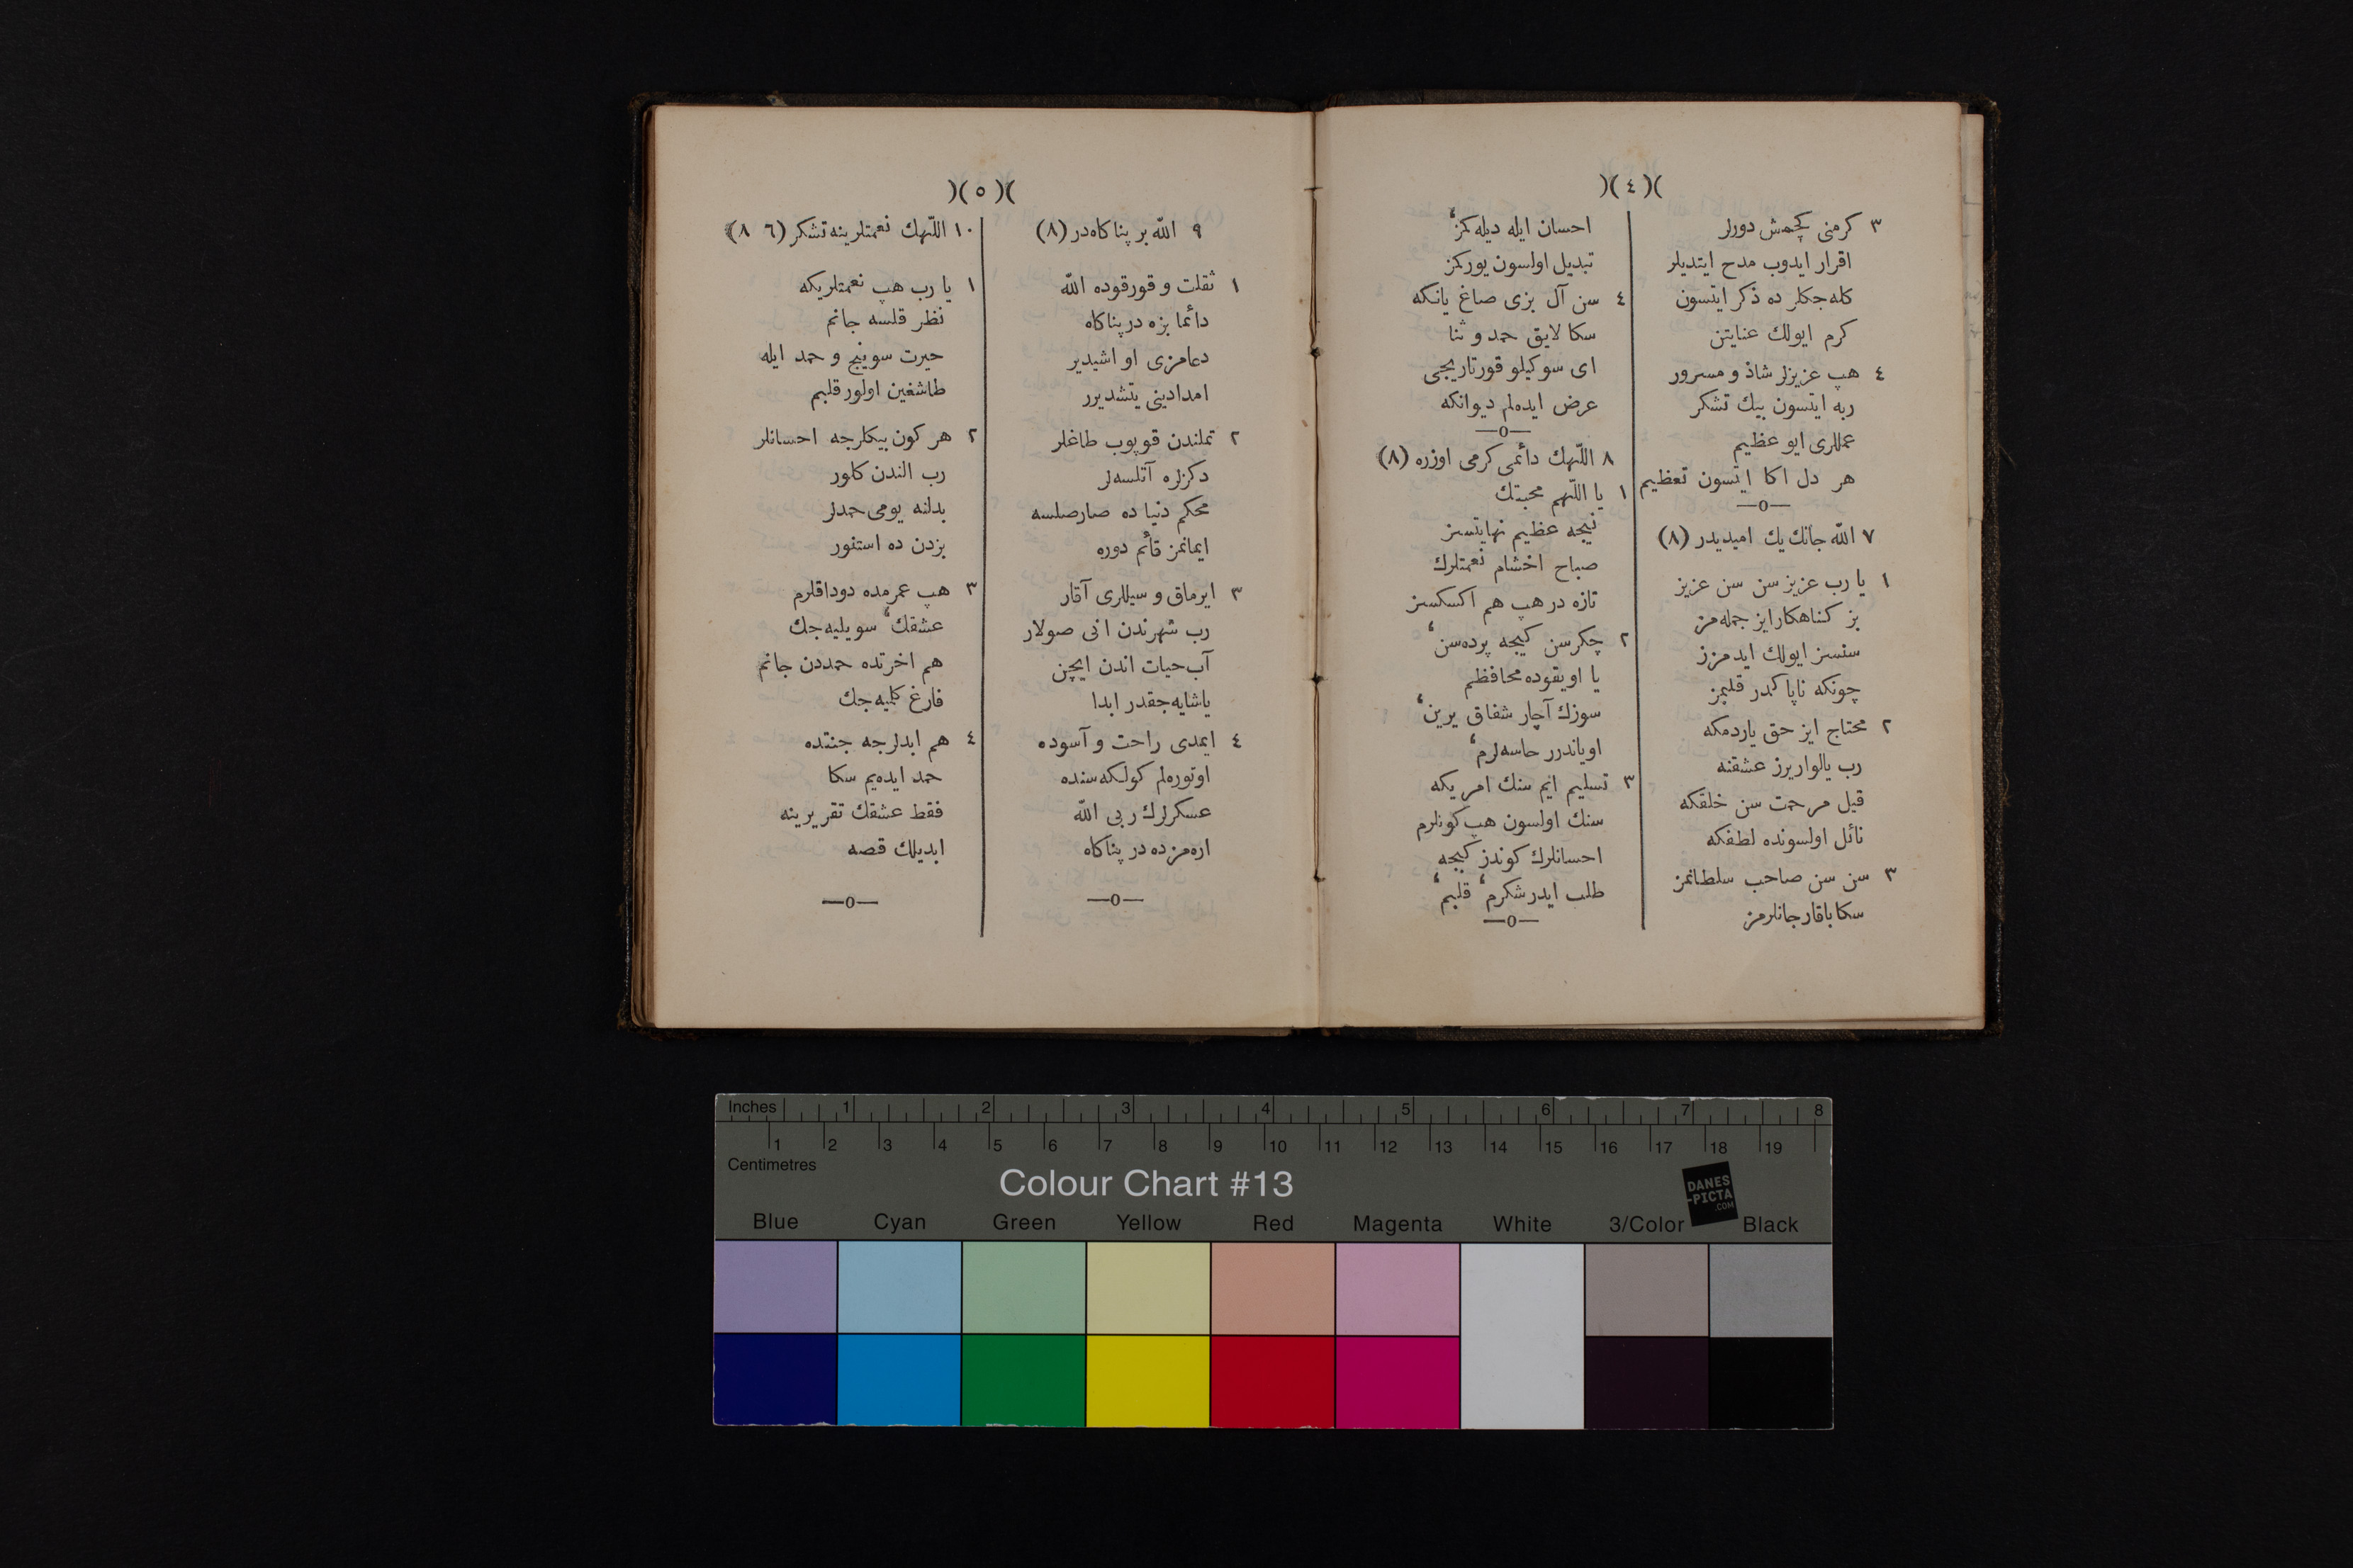 )( ٤ )(
٣ كرمنى كچمش دورلر
اقرار ايدوب مدح ايتديلر
كله جكلر ده ذكر ايتسون
كرم ايولك عنايتن
٤ هپ عزيزلر شاذ و مسرور
ربه ايتسون بيك تشكر
عمللرى ايو عظيم
هر دل اكا ايتسون تعظيم
—o—
٧ اللّه جانك يك اميديدر (٨)
١ يا رب عزيز سن سن عزيز
بز كناهكار ايز جمله مز
سنسز ايولك ايدمزز
چونكه ناپاكدر قلبمز
٢ محتاج ايز حق ياردمكه
رب يالواريرز عشقنه
قيل مرحمت سن خلقكه
نائل اولسونده لطفكه
٣ سن سن صاحب سلطانمز
سكا باقار جانلرمز
احسان ايله ديله كمز،
تبديل اولسون يوركمز
٤ سن آل بزى صاغ يانكه
سكا لايق حمد و ثنا
اى سوكيلو قورتاريجى
عرض ايده لم ديوانكه
—o—
٨ اللّهك دائمى كرمى اوزره (٨)
١ يا اللّهم محبتك
نيجه عظيم نهايتسز
صباح اخشام نعمتلرك
تازه در هپ هم اكسكسز
٢ چكرسن كيجه پرده سن،
يا اويقوده محافظم
سوزك آچار شفاق يرين،
اوياندرر حاسه لرم،
٣ تسليم ايم سنك امريكه
سنك اولسون هپ كونلرم
احسانلرك كوندز كيجه
طلب ايدر شكرم، قلبم،
—o—
)( ٥ )(
٩ اللّه بر پناكاه در (٨)
١ ثقلت و قورقوده اللّه
دائما بزه در پناكاه
دعامزى او اشيدير
امدادينى يتشديرر
٢ تملندن قوپوب طاغلر
دكزلره آتلسه لر
محكم دنيا ده صارصلسه
ايمانمز قائم دوره
٣ ايرماق و سيللرى آقار
رب شهرندن انى صولار
آب حيات اندن ايچن
ياشايه جقدر ابدا
٤ ايمدى راحت و آسوده
اوتوره لم كولكه سنده
عسكرلرك ربى اللّه
اره مزده در پناكاه
—o—
١٠ اللّهك نعمتلرينه تشكر (٦ ٨)
١ يا رب هپ نعمتلريكه
نظر قلسه جانم
حيرت سوينج و حمد ايله
طاشغين اولور قلبم
٢ هر كون بيكلرجه احسانلر
رب الندن كلور
بدلنه يومى حمدلر
بزدن ده استنور
٣ هپ عمرمده دوداقلرم
عشقك، سويليه جك
هم اخرتده حمددن جانم
فارغ كلميه جك
٤ هم ابدلرجه جنتده
حمد ايده يم سكا
فقط عشقك تقريرينه
ابديلك قصه
—o—
Inches 1 2 3 4 5 6 7 8
1 2 3 4 5 6 7 8 9 10 11 12 13 14 15 16 17 18 19
Centimetres
Colour Chart #13
DANES-PICTA.COM
Blue Cyan Green Yellow Red Magenta White 3/Color Black